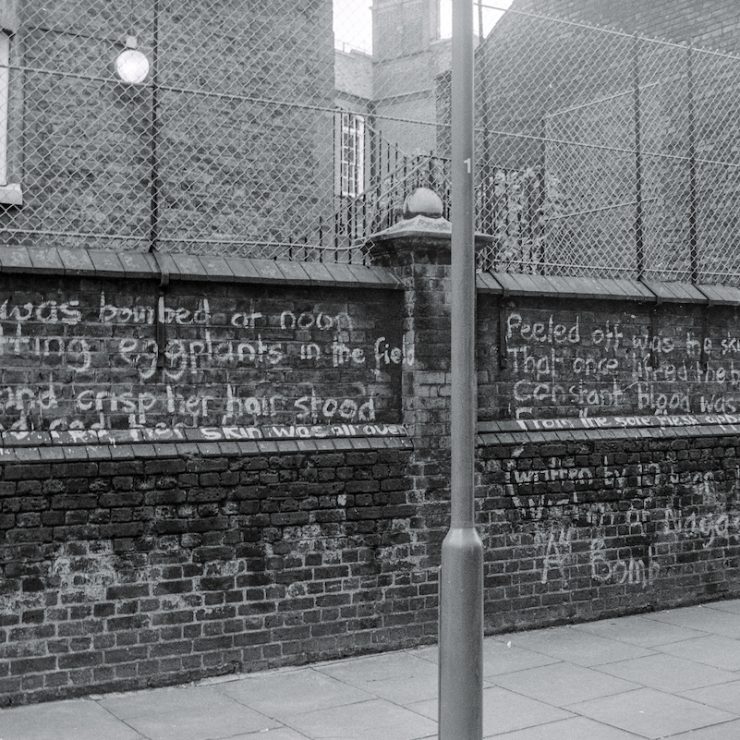 was bombed at noon
tting eggplants in the field
and crisp her hair stood
red, her skin was all over
Peeled off was the ski
That once lined the b
Constant blood was
From the sore flesh
(written by
victim of Nagas
"A" Bomb
1